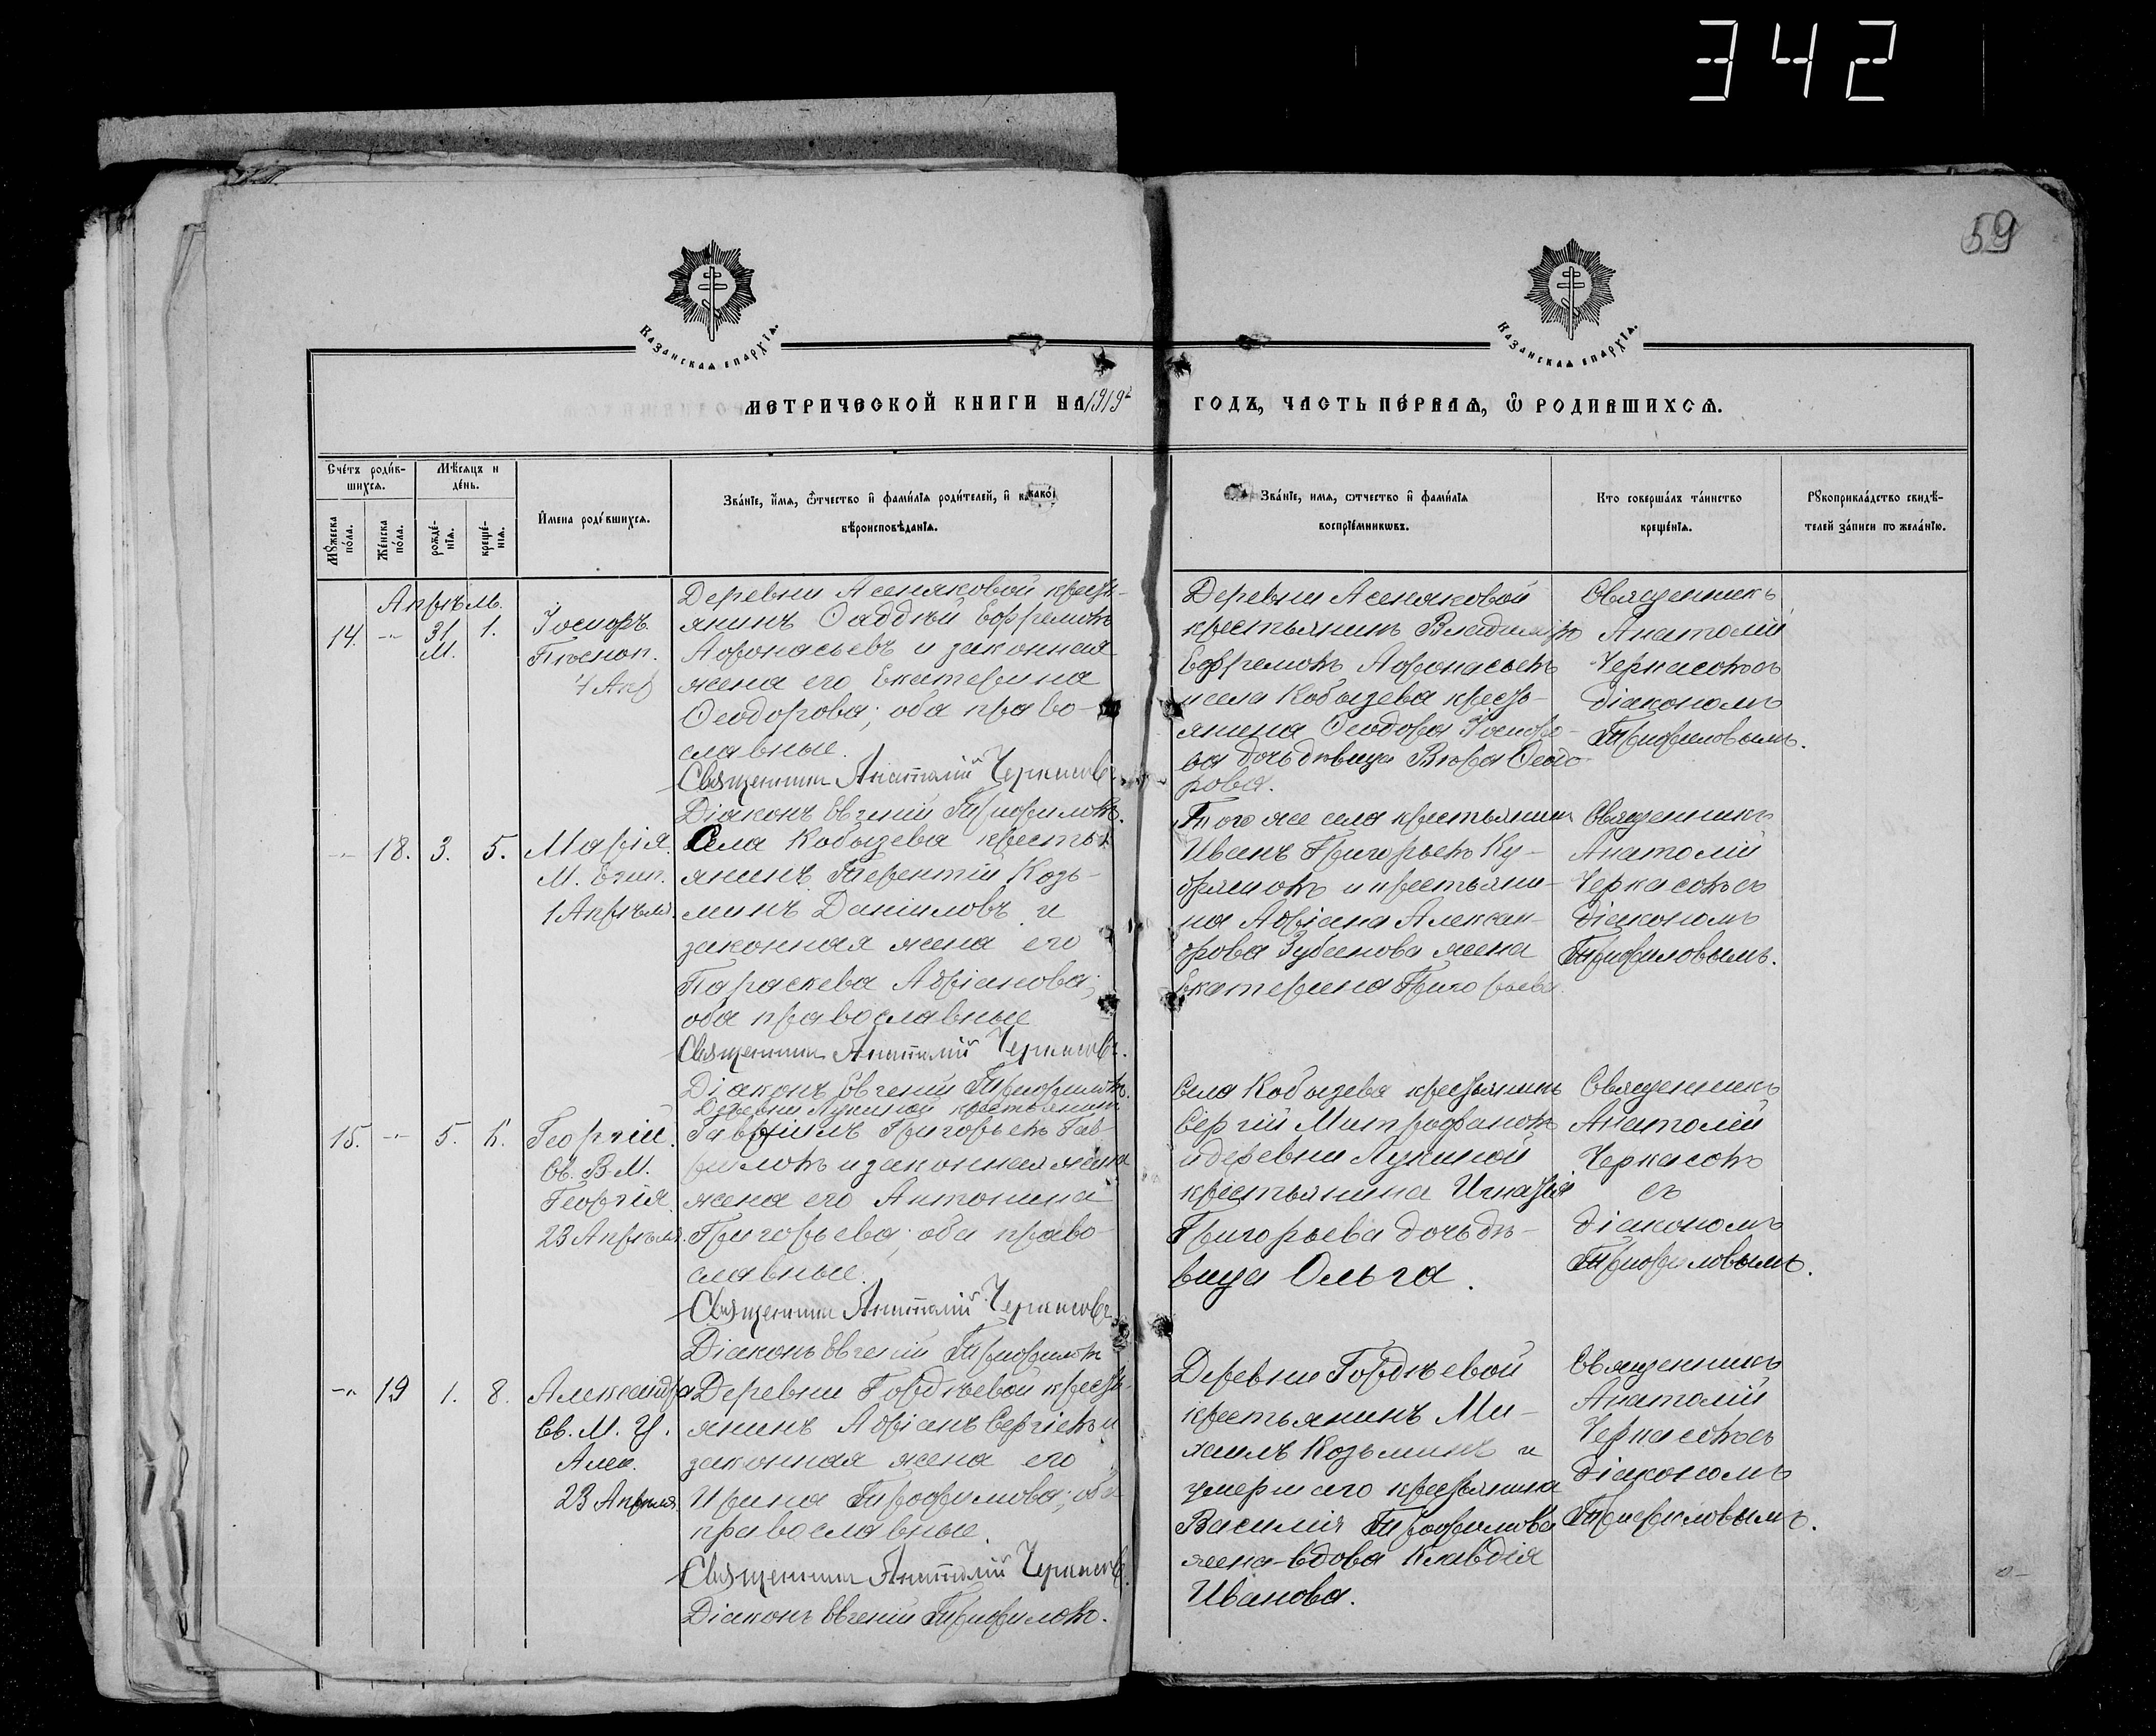 342
59
Казанская епархїѧ.
Казанская епархїѧ.
метрической книги на 1919 г
годъ, часть первая, ѿ родившихсѧ.
Счетъ родив-
шихсѧ.
Мѣсяцъ и
день.
Мꙋжеска
пола.
Женска
пола.
рожде-
нїѧ.
креще-
нїѧ.
Имена родившихсѧ.
Званїе, имѧ, ѿтчество и фамилїѧ родителей, и какой
вѣроисповѣданїѧ.
Званїе, имѧ, ѿтчество и фамилїѧ
воспрїемникѡвъ.
Кто совершалъ таинство
крещенїѧ.
Рꙋкоприкладство свидѣ-
телей записи по желанїю.
Апрѣль.
14. -"- 31 М. 1.
Іосифъ
Пѣсноп.
4 Апр
Деревни Асеняковой кресть-
янинъ Ѳаддѣй Ефремовъ
Афонасьевъ и законная
жена его Екатерина
Ѳеодорова; оба право-
славные.
Священникъ Анатолій Черкасовъ
Діаконъ Евгеній Трифиловъ.
Деревни Асеняковой
крестьянинъ Владиміръ
Ефремовъ Афонасьевъ
и села Кобызева кресть-
янина Ѳеодора Іосифо-
ва дочь дѣвица Вѣра Ѳеодо-
рова.
Священникъ
Анатолій
Черкасовъ съ
діакономъ
Трифиловымъ.
-"- 18. 3. 5.
Марія.
М. Егип.
1 Апрѣля.
Села Кобызева кресть-
янинъ Терентій Козь-
минъ Даниловъ и
законная жена его
Параскева Адріанова;
оба православные
Священникъ Анатолій Черкасовъ.
Діаконъ Евгеній Трифиловъ.
Того же села крестьянинъ
Иванъ Григорьевъ Ку-
дряшовъ и крестьяни-
на Адріана Алексан-
дрова жена
Екатерина Григорьева.
Священникъ
Анатолій
Черкасовъ съ
діакономъ
Трифиловымъ.
15. -"- 5. 6.
Георгій.
Св. В. М.
Георгія.
23 Апрѣля.
Деревни Лукиной крестьянинъ
Гавріилъ Григорьевъ Гав-
риловъ и законная жена
жена его Антонина
Григорьева; оба право-
славные.
Священникъ Анатолій Черкасовъ.
Діаконъ Евгеній Трифиловъ
Села Кобызева крестьянинъ
Сергій Митрофановъ
и деревни Лукиной
крестьянина Игнатія
Григорьева дочь дѣ-
вица Ольга.
Священникъ
Анатолій
Черкасовъ
съ
діакономъ
Трифиловымъ.
-"- 19 1. 8.
Александра
Св. М. Ц.
Алек.
23 Апрѣля.
Деревни Гордѣевой кресть-
янинъ Адріанъ Сергіевъ и
законная жена его
Ирина Трофимова; оба
православные.
Священникъ Анатолій Черкасовъ.
Діаконъ Евгеній Трифиловъ.
Деревни Гордѣевой
крестьянинъ Ми-
хаилъ Козьминъ и
умершаго крестьянина
Василія Трофимова
жена-вдова Клавдія
Иванова.
Священникъ
Анатолій
Черкасовъ съ
діакономъ
Трифиловымъ.